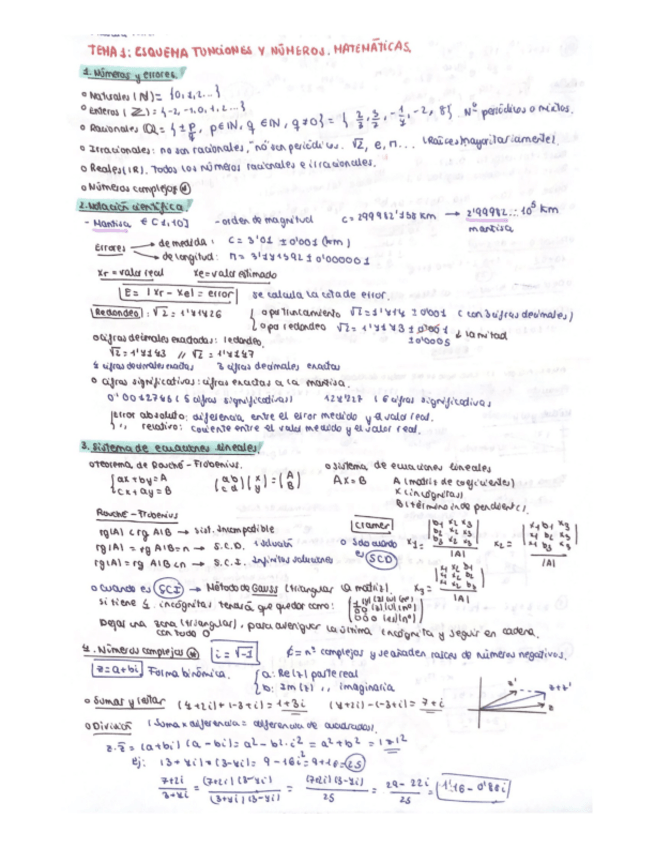 TEMA 1: ESQUEMA FUNCIONES Y NÚMEROS. MATEMÁTICAS.
1. Números y errores.
○ Naturales (ℕ) = {0,1,2...}
○ Enteros (ℤ) = {-2,-1,0,1,2...}
○ Racionales ℚ = {± p/q, p∈ℕ, q∈ℕ, q≠0} = . Nº periódicos o mixtos.
○ Irracionales: no son racionales, no son periódicos. √2, e, π... (Raíces mayoritariamente).
○ Reales (ℝ). Todos los números racionales e irracionales.
○ Números complejos
2. Notación científica.
- Mantisa ∈ [1,10] - orden de magnitud C = 299982'158 km → 2'99982... 10⁵ km
mantisa
Errores → de medida: C = 3'01 ± 0'001 (km)
→ de longitud: π = 3'141592 ± 0'000001
xr = valor real xe = valor estimado
E = |xr - xe| = error se calcula la cota de error.
Redondeo: √2 = 1'41426 { o por truncamiento √2 = 1'414 ± 0'001 (con 3 cifras decimales)
o por redondeo √2 = 1'4143 ± 0'001 la mitad
± 0'0005
○ cifras decimales exactas: redondeo.
√2 = 1'4143 // √2 = 1'4147
4 cifras decimales exactas 3 cifras decimales exactas
○ cifras significativas: cifras exactas a la mantisa.
0'0012745 (5 cifras significativas) 124727 (6 cifras significativas
error absoluto: diferencia entre el error medido y el valor real.
" relativo: cociente entre el valor medido y el valor real.
3. Sistema de ecuaciones lineales.
○ teorema de Rouché - Frobenius. ○ sistema de ecuaciones lineales
{ax+by=A (a b) (x) = (A) AX=B A (matriz de coeficientes)
{cx+dy=B (c d) (y) (B) X (incógnitas)
B (término independiente).
Rouché - Frobenius
rg(A) < rg A|B → sist. Incompatible
rg(A) = rg A|B = n → S.C.D. 1 solución
rg(A) = rg A|B < n → S.C.I. Infinitas soluciones
Cramer
○ Solo cuando es SCD
x₁ = |b₁ x₂ x₃| / |A| x₂ = |x₁ b₁ x₃| / |A|
x₃ = |x₁ x₂ b₁| / |A|
○ Cuando es SCI → Método de Gauss (triangular la matriz).
si tiene 4 incógnitas tendrá que quedar como:
Dejar una zona (triangular), para averiguar la última incógnita y seguir en cadena.
con todo 0
4. Números complejos i = √-1 ℂ = nº complejos y se añaden raíces de números negativos.
z = a+bi Forma binómica. { a: Re(z) parte real
b: Im(z) " imaginaria
○ Sumar y restar (4+2i)+(-3+i) = 1+3i (4+2i)-(-3+i) = 7+i
z' z+z' z
○ División (Suma x diferencia = diferencia de cuadrados).
z·z̄ = (a+bi)(a-bi) = a²-b²·i² = a²+b² = |z|²
ej: (3+4i)·(3-4i) = 9-16i² = 9+16 = 25
7+2i / 3+4i = (7+2i)(3-4i) / (3+4i)(3-4i) = (7+2i)(3-4i) / 25 = 29-22i / 25 = 1'16 - 0'88i